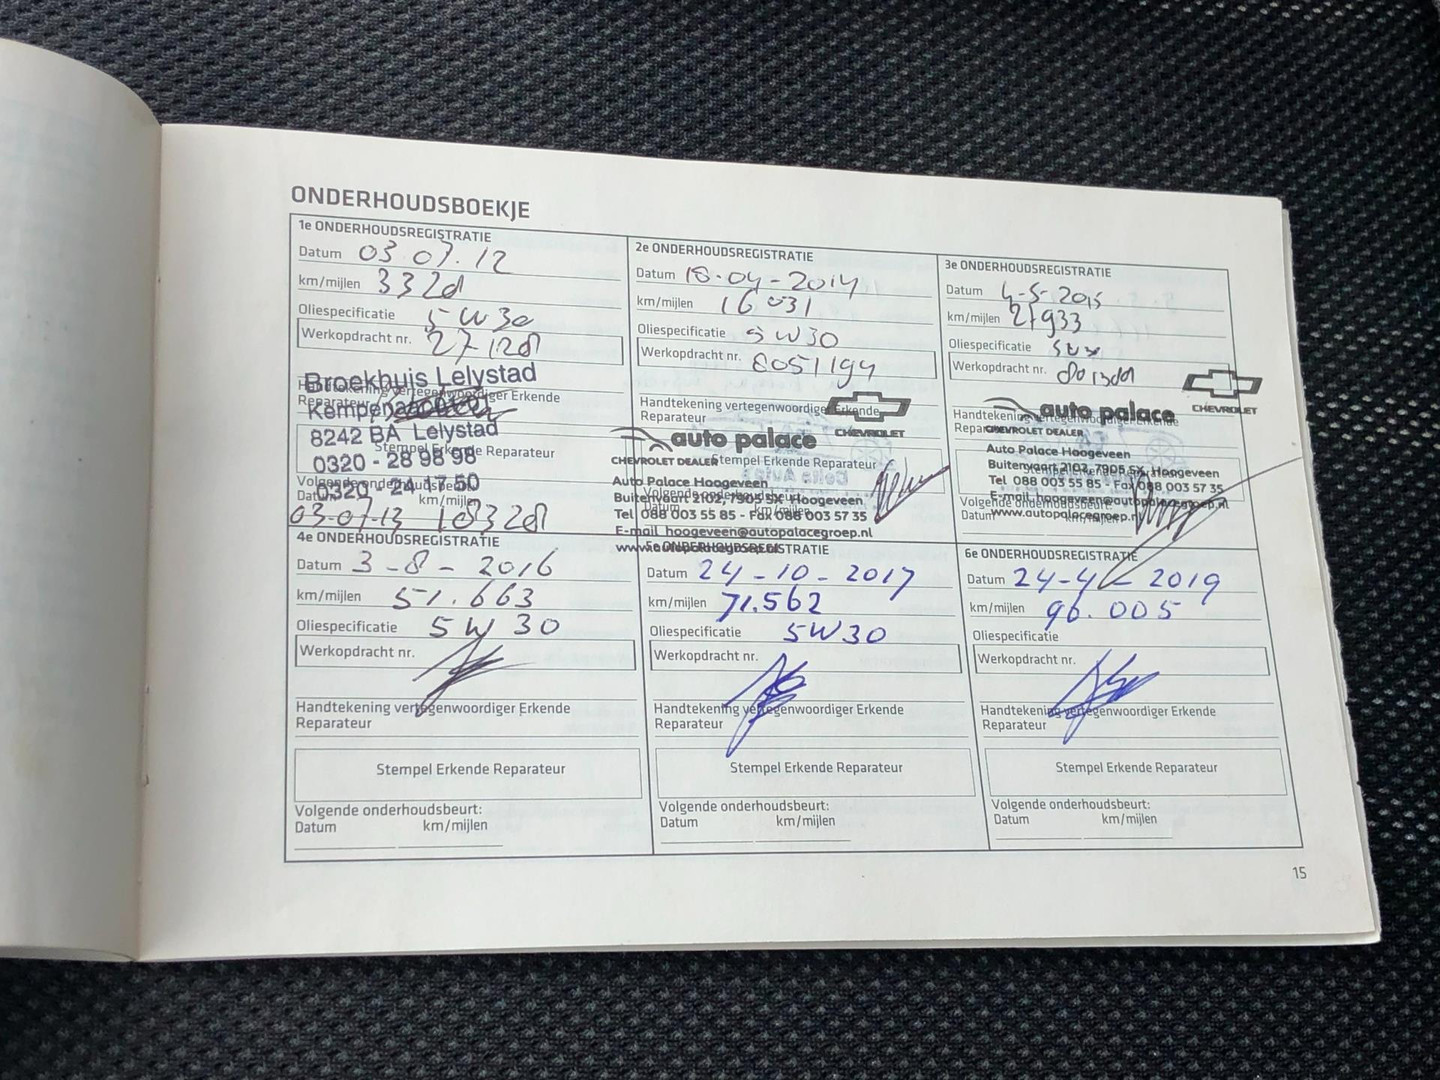 ONDERHOUDSBOEKJE
1e ONDERHOUDSREGISTRATIE
Datum 03 07. 12
km/mijlen 3320
Oliespecificatie 5W30
Werkopdracht nr. 27120
Broekhuis Lelystad
Handtekening vertegenwoordiger Erkende
Reparateur
8242 BA Lelystad
Stempel Erkende Reparateur
0320 - 28 98 98
Volgende onderhoudsbeurt:
0320 - 24 17 50
Datum km/mijlen
03-07-13
2e ONDERHOUDSREGISTRATIE
Datum 18-04-2014
km/mijlen 16 031
Oliespecificatie 5W30
Werkopdracht nr. 8051194
Handtekening vertegenwoordiger Erkende
Reparateur
CHEVROLET
auto palace
CHEVROLET DEALER
Stempel Erkende Reparateur
Auto Palace Hoogeveen
Volgende onderhoudsbeurt:
Buitenvaart 2102, 7905 SX Hoogeveen
Datum km/mijlen
Tel 088 003 55 85 - Fax 088 003 57 35
E-mail hoogeveen@autopalacegroep.nl
www.autopalacegroep.nl
3e ONDERHOUDSREGISTRATIE
Datum 4-5-2015
km/mijlen 27933
Oliespecificatie
Werkopdracht nr.
CHEVROLET
Handtekening vertegenwoordiger Erkende
Reparateur
auto palace
CHEVROLET DEALER
Auto Palace Hoogeveen
Buitenvaart 2102, 7905 SX, Hoogeveen
Stempel Erkende Reparateur
Tel 088 003 55 85 - Fax 088 003 57 35
E-mail hoogeveen@autopalacegroep.nl
Volgende onderhoudsbeurt:
www.autopalacegroep.nl
Datum km/mijlen
4e ONDERHOUDSREGISTRATIE
Datum 3-8-2016
km/mijlen 51.663
Oliespecificatie 5W30
Werkopdracht nr.
Handtekening vertegenwoordiger Erkende
Reparateur
Stempel Erkende Reparateur
Volgende onderhoudsbeurt:
Datum km/mijlen
5e ONDERHOUDSREGISTRATIE
Datum 24-10-2017
km/mijlen 71.562
Oliespecificatie 5W30
Werkopdracht nr.
Handtekening vertegenwoordiger Erkende
Reparateur
Stempel Erkende Reparateur
Volgende onderhoudsbeurt:
Datum km/mijlen
6e ONDERHOUDSREGISTRATIE
Datum 24-4-2019
km/mijlen 96.005
Oliespecificatie
Werkopdracht nr.
Handtekening vertegenwoordiger Erkende
Reparateur
Stempel Erkende Reparateur
Volgende onderhoudsbeurt:
Datum km/mijlen
15